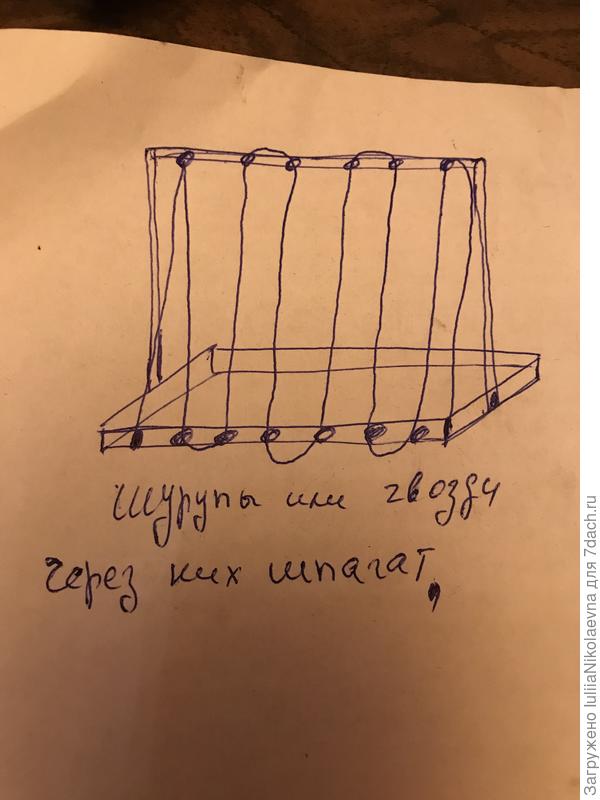 Шурупы или гвозди
Через них шпагат,
Загружено IuliiaNikolaevna для 7dach.ru